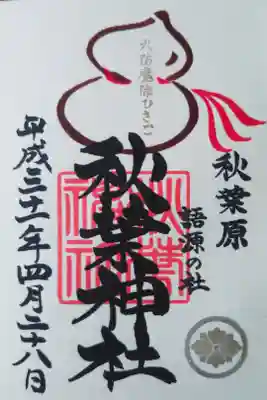 火防魔除ひさご
秋葉原
語源の社
秋葉神社
秋葉神社
平成三十一年四月二十八日